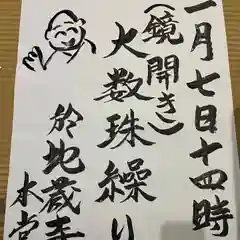 一月七日十四時
(鏡開き)
大数珠繰り
於地蔵寺
本堂